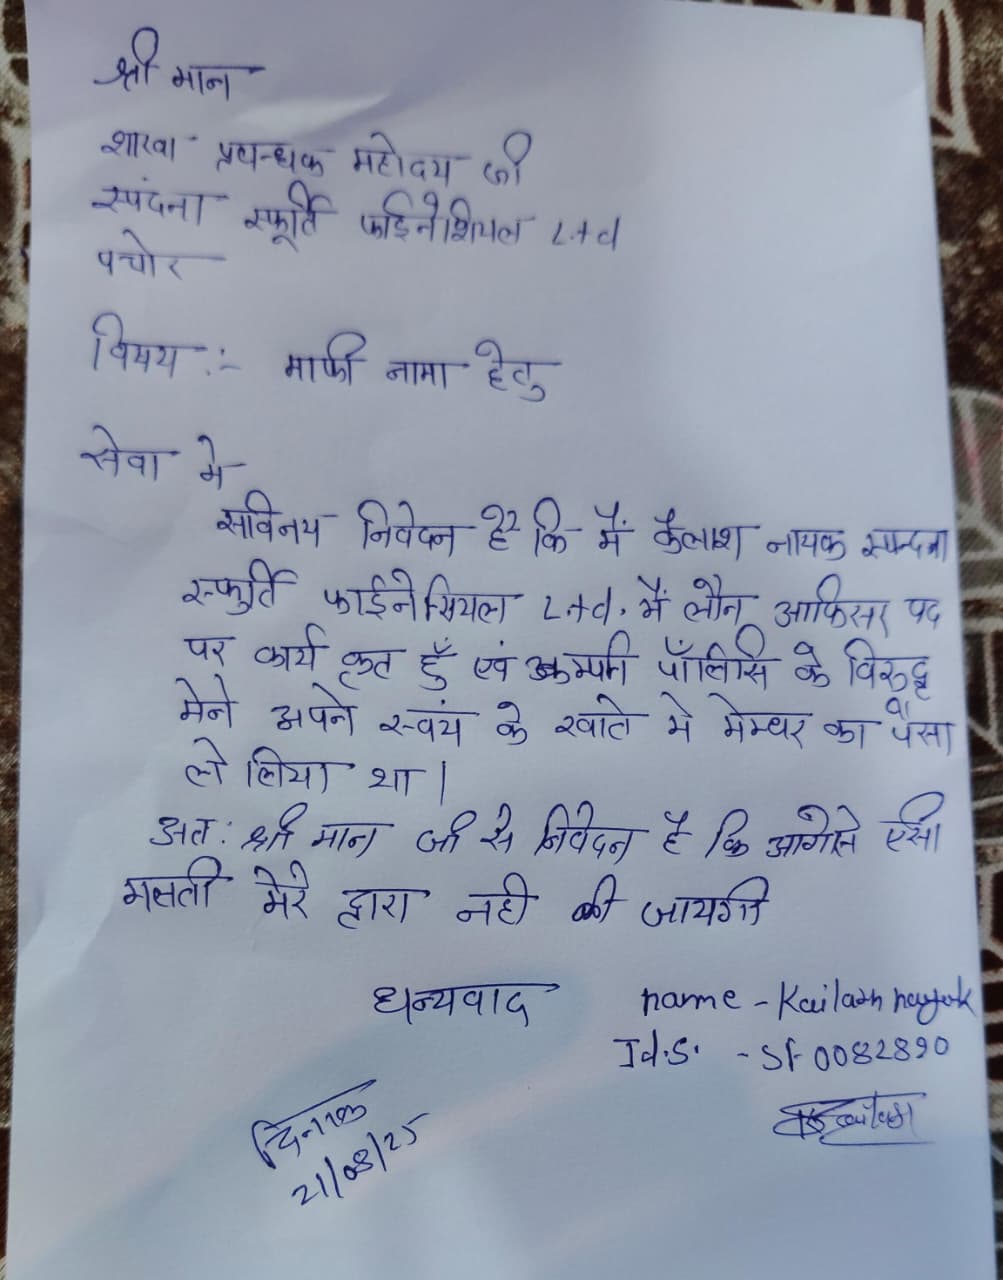 श्री मान
शाखा प्रबन्धक महोदय जी
स्पंदना स्फूर्ति फाईनेंशियल Ltd
पचोर
विषय :- माफी नामा हेतु
सेवा मे
सविनय निवेदन है कि मैं कैलाश नायक स्पन्दना
स्फुर्ति फाईनेंसियल Ltd. में लौन आफिसर पद
पर कार्य कृत हूँ एवं कम्पनी पॉलिसि के विरुद्ध
मेने अपने स्वयं के खाते मे मेम्बर का पैसा
ले लिया था।
अतः श्री मान जी से निवेदन है कि आगे से एसी
गलती मेरे द्वारा नही की जायगी
धन्यवाद name - Kailash nayak
Id.S. - Sf 0082890
दिनांक Kailash
21/08/25